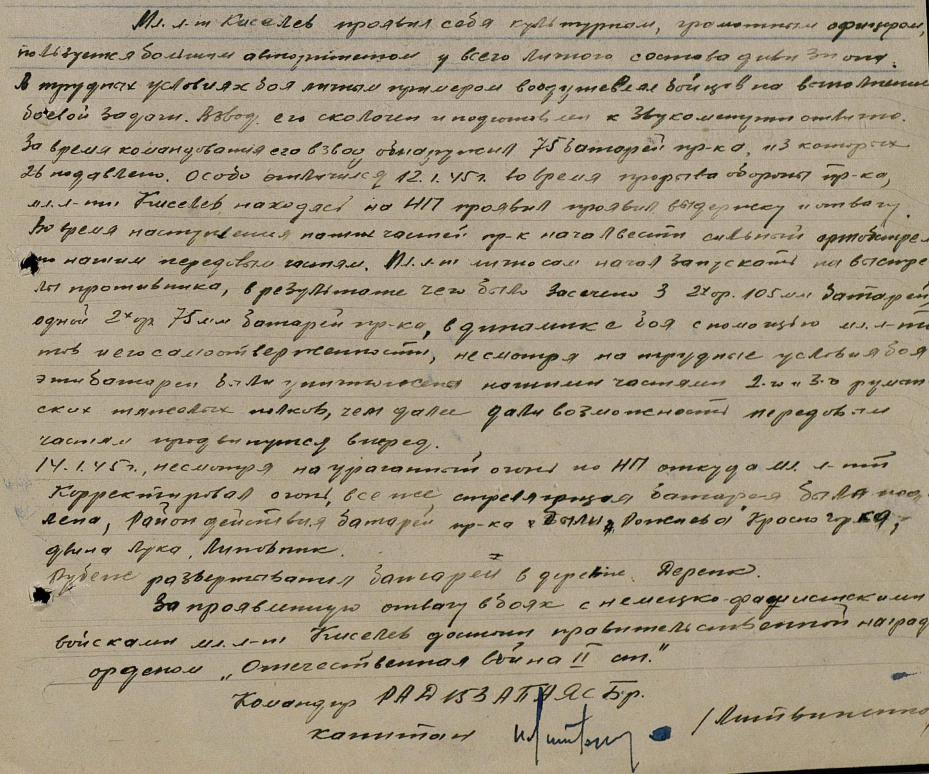 Мл. л-т Киселев проявил себя культурным, грамотным офицером,
пользуется большим авторитетом у всего личного состава дивизиона.
В трудных условиях боя личным примером воодушевлял бойцов на выполнение
боевой задачи. Взвод его сколочен и подготовлен к
За время командования его взвод обнаружил 75 батарей пр-ка, из которых
26 подавлено. Особо отличился 12.1.45г. во время прорыва обороны пр-ка,
мл. л-т Киселев находясь на НП проявил проявил выдержку и отвагу.
Во время наступления наших частей пр-к начал вести сильный артобстрел
по нашим передовым частям. Мл. л-т начал запускать на выстре
лы противника, в результате чего было засечено 3 2х ор. 105 мм батарей
одной 2х ор. 75 мм батарей пр-ка, в динамике боя с помощью мл. л-та
и его самоотверженности, несмотря на трудные условия боя
эти батареи были уничтожены нашими частями 2-го и 3-го румын
ских полков, чем дали дали возможность передовым
частям продвинутся вперед.
14.1.45г., несмотря на ураганный огонь по НП откуда мл. л-т
корректировал огонь, все же стреляющая батарея была подав
лена, Район действия батарей пр-ка были Красно горка,
Лука, Липовник.
Рубеж развертывания батарей в деревне
За проявленную отвагу в боях с немецко-фашистскими
войсками мл. л-т Киселев достоин правительственной наград
орденом „Отечественная война II ст."
Командир РАД 153 АПАЯС Бр.
капитан /Литвиненко